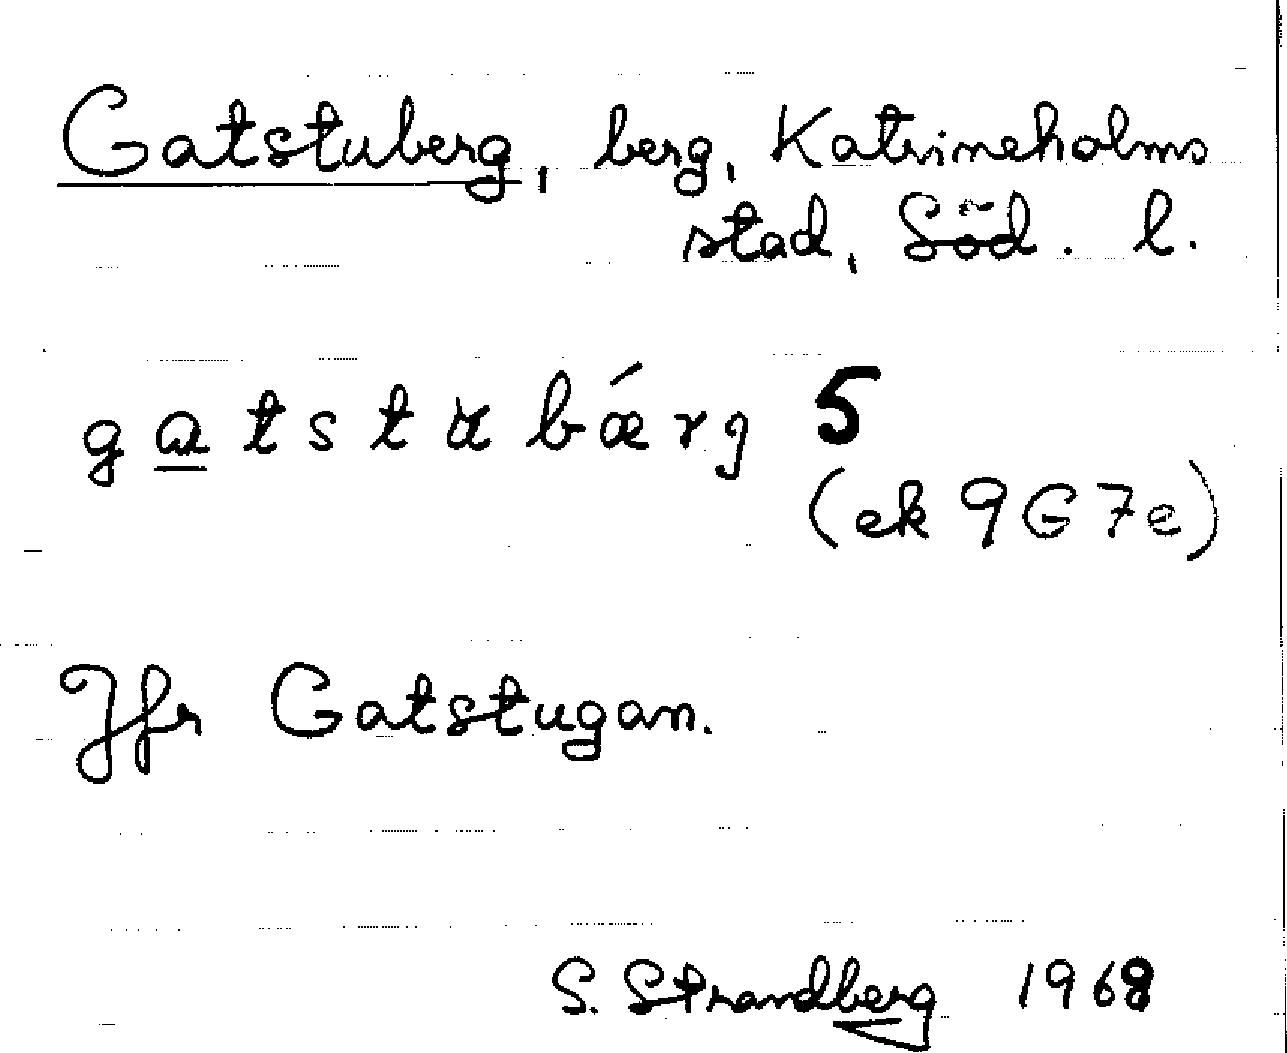 Gatstuberg, berg, Katrineholms
stad, Söd. l.
gatstubærg 5
(ek 9G7e)
Jfr Gatstugan.
S. Strandberg 1968